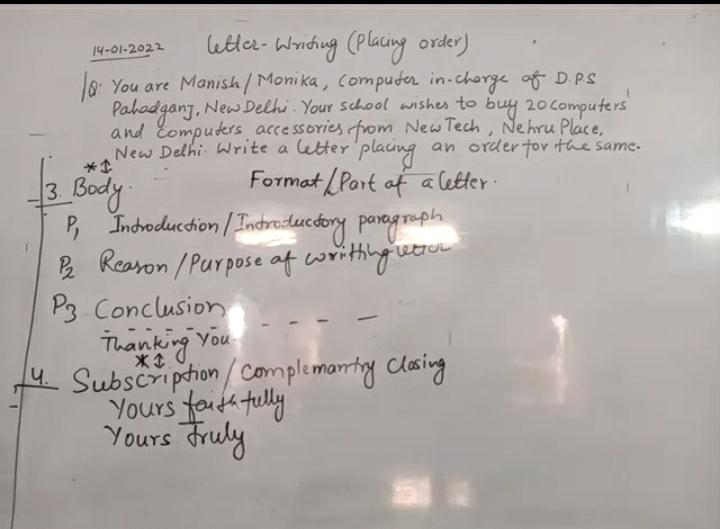 14-01-2022 Letter-Writing (Placing order)
Q: You are Manish/Monika, Computer in-charge of D.P.S
Pahadganj, New Delhi. Your school wishes to buy 20 computers
and computers accessories from New Tech, Nehru Place,
New Delhi. Write a letter placing an order for the same.
3. Body. Format/Part of a letter.
P1 Introduction/Introductory paragraph
P2 Reason/Purpose of writting letter
P3 Conclusion
Thanking You
4. Subscription/Complemantry Closing
Yours faithfully
Yours truly